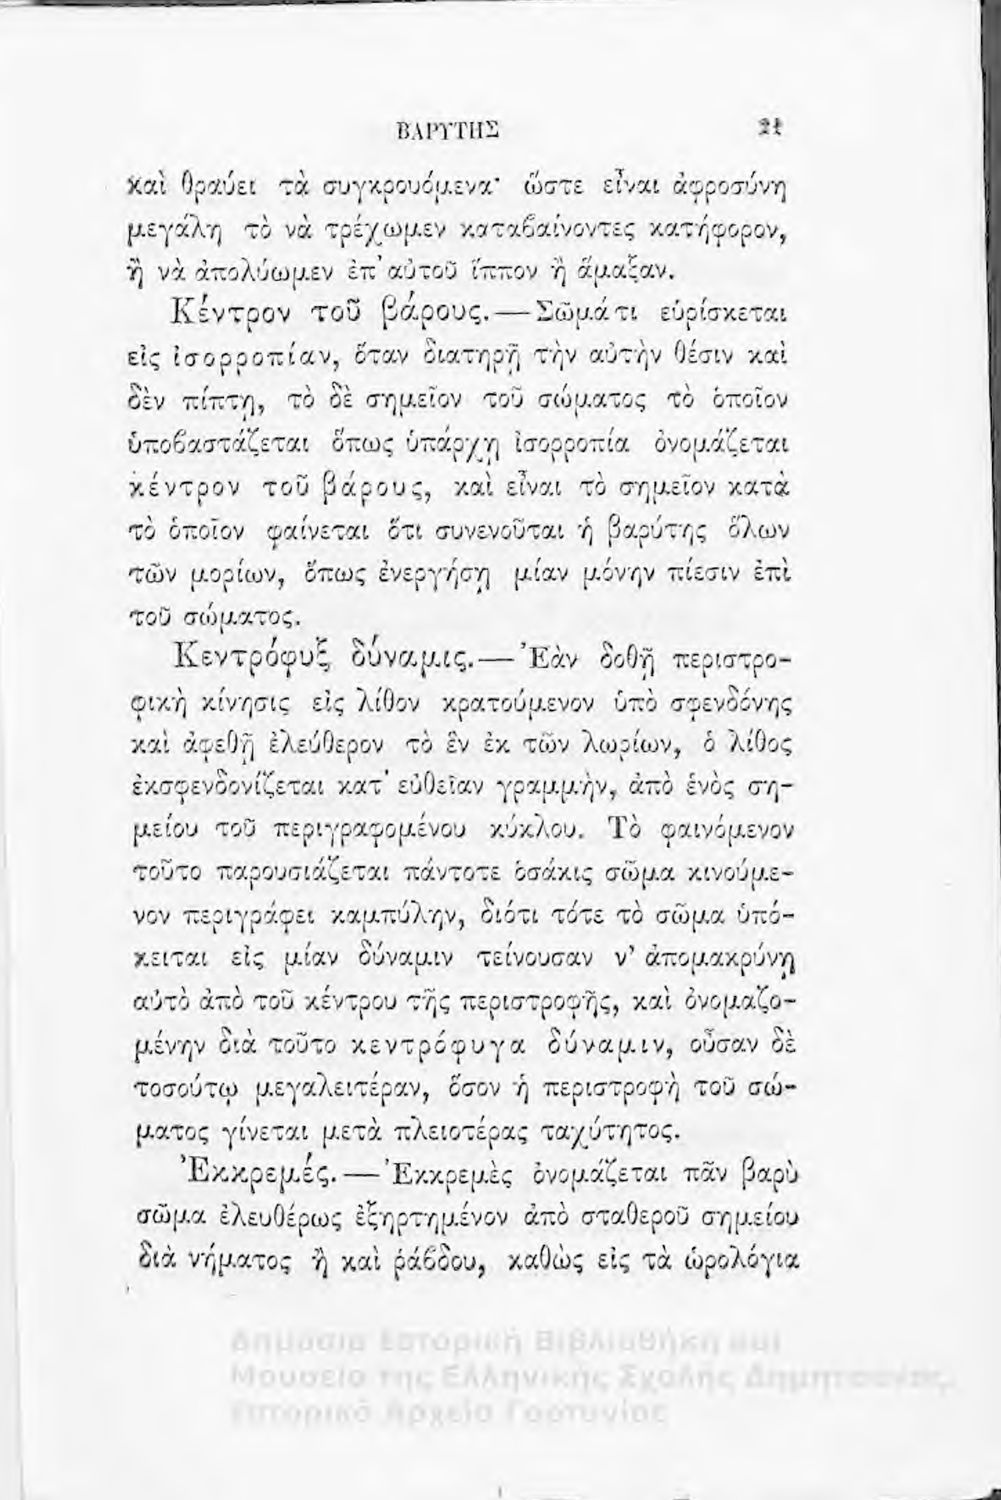 ΒΑΡΥΤΗΣ 21
καὶ θραύει τὰ συγκρουόμενα· ὥστε εἶναι ἀφροσύνη
μεγάλη τὸ νὰ τρέχωμεν καταβαίνοντες κατήφορον,
ἢ νὰ ἀπολύωμεν ἐπ' αὐτοῦ ἵππον ἢ ἅμαξαν.
Κέντρον τοῦ βάρους.— Σῶμά τι εὑρίσκεται
εἰς ἰσορροπίαν, ὅταν διατηρῇ τὴν αὐτὴν θέσιν καὶ
δὲν πίπτῃ, τὸ δὲ σημεῖον τοῦ σώματος τὸ ὁποῖον
ὑποβαστάζεται ὅπως ὑπάρχῃ ἰσορροπία ὀνομάζεται
κέντρον τοῦ βάρους, καὶ εἶναι τὸ σημεῖον κατὰ
τὸ ὁποῖον φαίνεται ὅτι συνενοῦται ἡ βαρύτης ὅλων
τῶν μορίων, ὅπως ἐνεργήσῃ μίαν μόνην πίεσιν ἐπὶ
τοῦ σώματος.
Κεντρόφυξ δύναμις.— Ἐὰν δοθῇ περιστρο-
φικὴ κίνησις εἰς λίθον κρατούμενον ὑπὸ σφενδόνης
καὶ ἀφεθῇ ἐλεύθερον τὸ ἓν ἐκ τῶν λωρίων, ὁ λίθος
ἐκσφενδονίζεται κατ' εὐθεῖαν γραμμὴν, ἀπὸ ἑνὸς ση-
μείου τοῦ περιγραφομένου κύκλου. Τὸ φαινόμενον
τοῦτο παρουσιάζεται πάντοτε ὁσάκις σῶμα κινούμε-
νον περιγράφει καμπύλην, διότι τότε τὸ σῶμα ὑπό-
κειται εἰς μίαν δύναμιν τείνουσαν ν' ἀπομακρύνῃ
αὐτὸ ἀπὸ τοῦ κέντρου τῆς περιστροφῆς, καὶ ὀνομαζο-
μένην διὰ τοῦτο κεντρόφυγα δύναμιν, οὖσαν δὲ
τοσούτῳ μεγαλειτέραν, ὅσον ἡ περιστροφὴ τοῦ σώ-
ματος γίνεται μετὰ πλειοτέρας ταχύτητος.
Ἐκκρεμές.— Ἐκκρεμὲς ὀνομάζεται πᾶν βαρὺ
σῶμα ἐλευθέρως ἐξηρτημένον ἀπὸ σταθεροῦ σημείου
διὰ νήματος ἢ καὶ ῥάβδου, καθὼς εἰς τὰ ὡρολόγια
Δημόσια Ιστορική Βιβλιοθήκη και
Μουσείο της Ελληνικής Σχολής Δημητσάνας,
Ιστορικό Αρχείο Γορτυνίας